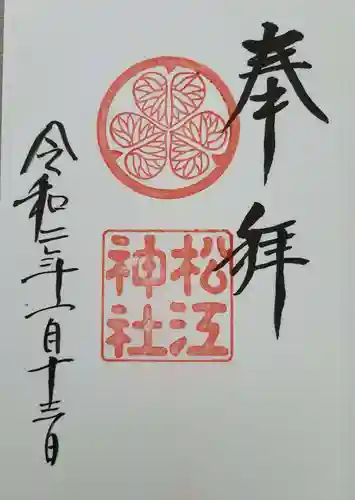 奉拝
松江
神社
令和二年一月十三日